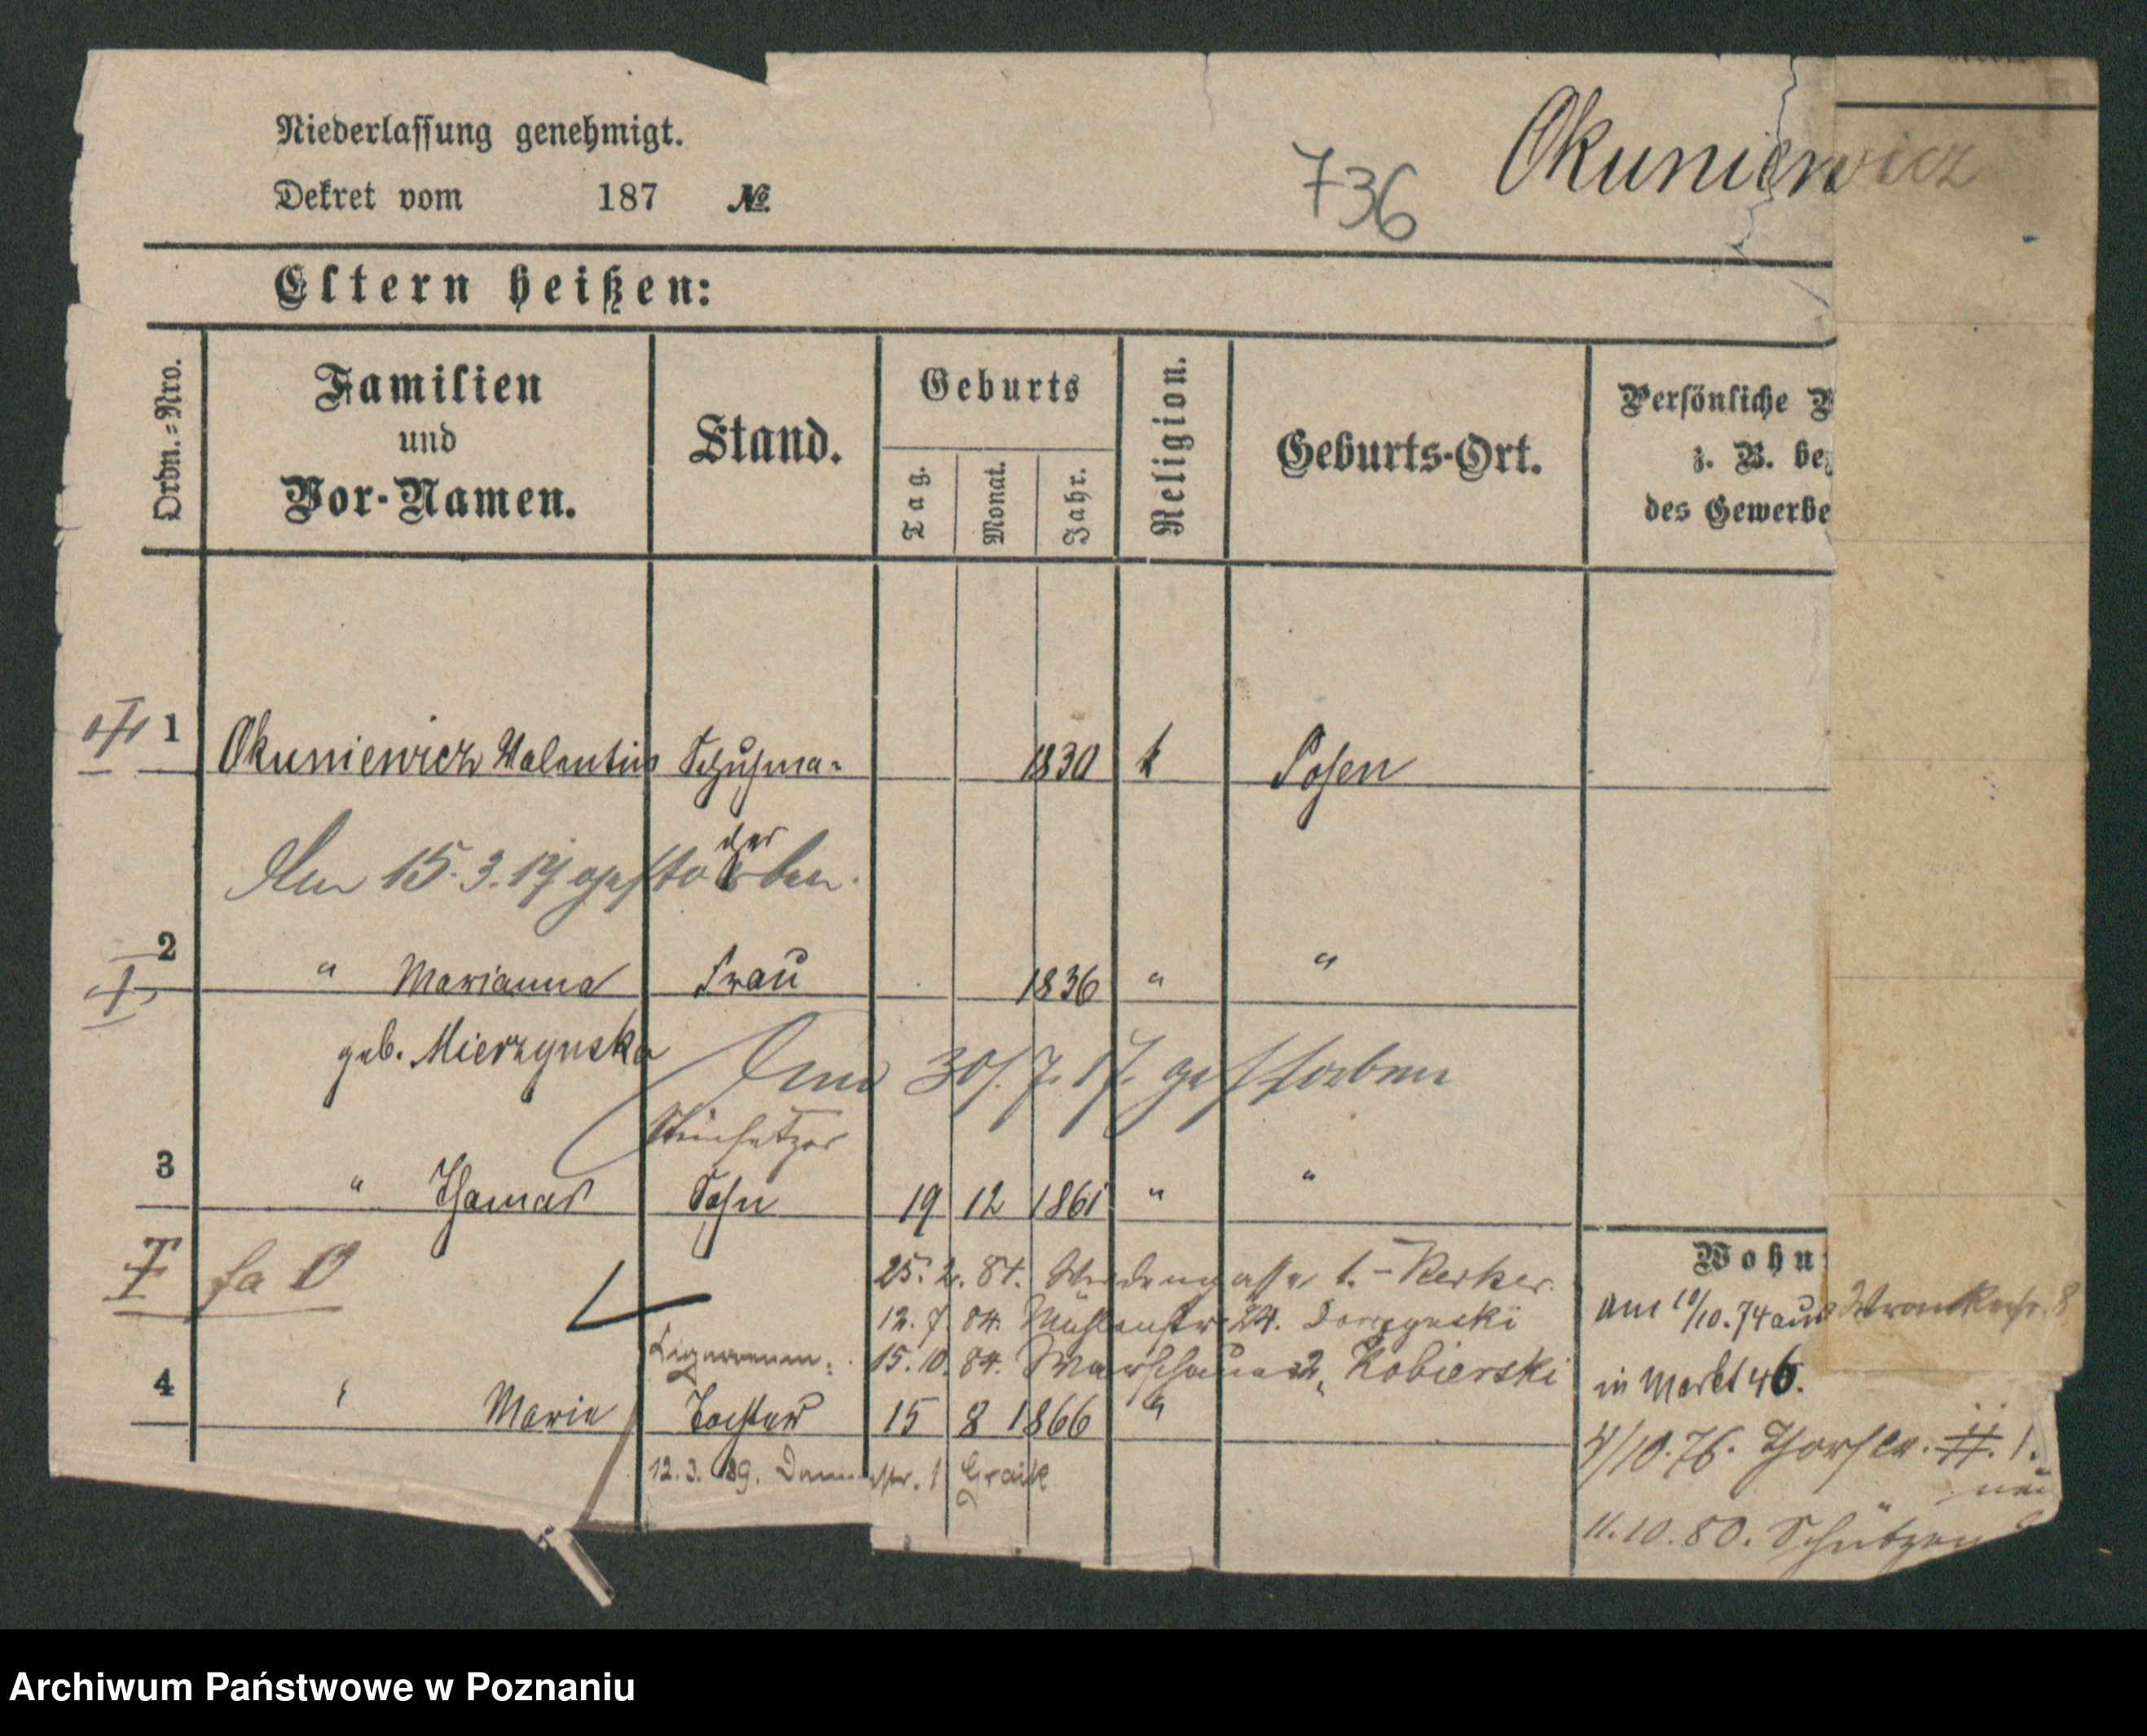 Niederlassung genehmigt.
Dekret vom 187 №
736
Okuniewicz
Eltern heißen:
Ordn.=Nro.
Familien
und
Vor-Namen.
Stand.
Geburts
Tag.
Monat.
Jahr.
Religion.
Geburts-Ort.
Persönliche
z. B. be
des Gewerbe
1 Okuniewicz Valentin Schuhma- 1830 k Posen
cher
Am 15.3.19 gestorben.
2 " Marianna Frau 1836 " "
geb. Mierzynska
Am 30/.7.17. gestorben
Steinsetzer
3 " Thomas Sohn 19 12 1861 " "
25.2.84. 1. - Kerker.
12.7.84. Mühlenstr 24.
Cigarren:
15.10.84. Warschauer 2, Kobierski
4 " Marie Tochter 15 8 1866 "
12.3.89. 1
Wohn
am 10/10.74 aus Wronkerstr. 8
in Markt 46.
4/10.76. II. 1.
neu
11.10.80. Schützen
Archiwum Państwowe w Poznaniu